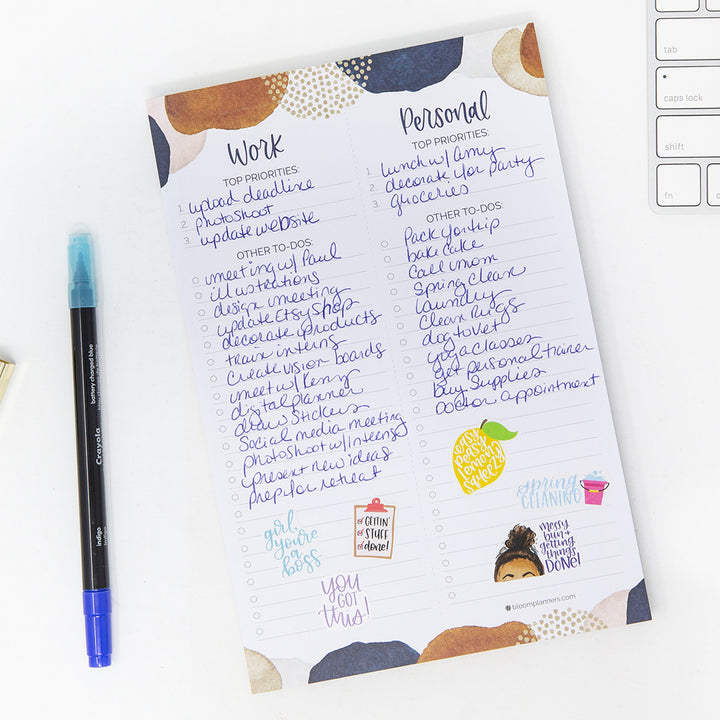 Work
TOP PRIORITIES:
1. upload deadline
2. photoshoot
3. update website
OTHER TO-DOS:
meeting w/ Paul
illustrations
design meeting
update Etsy shop
decorate products
train interns
create vision boards
meet w/ Kenny
digital planner
draw stickers
Social media meeting
photoshoot w/ Interns
present new ideas
prep for retreat
girl,
you're
a
boss
GETTIN'
STUFF
done!
YOU
GOT
this!
Personal
TOP PRIORITIES:
1. lunch w/ Amy
2. decorate for party
3. groceries
OTHER TO-DOS:
Pack for trip
bake cake
Call mom
Spring clean
laundry
Clean Rugs
dog to Vet
yoga classes
get personal trainer
Buy Supplies
Doctor appointment
easy
peasy
lemon
squeezy
spring
CLEANING
messy
bun +
getting
things
DONE!
bloomplanners.com
battery charged blue
Crayola
indigo
indigo
tab
caps lock
shift
fn
control